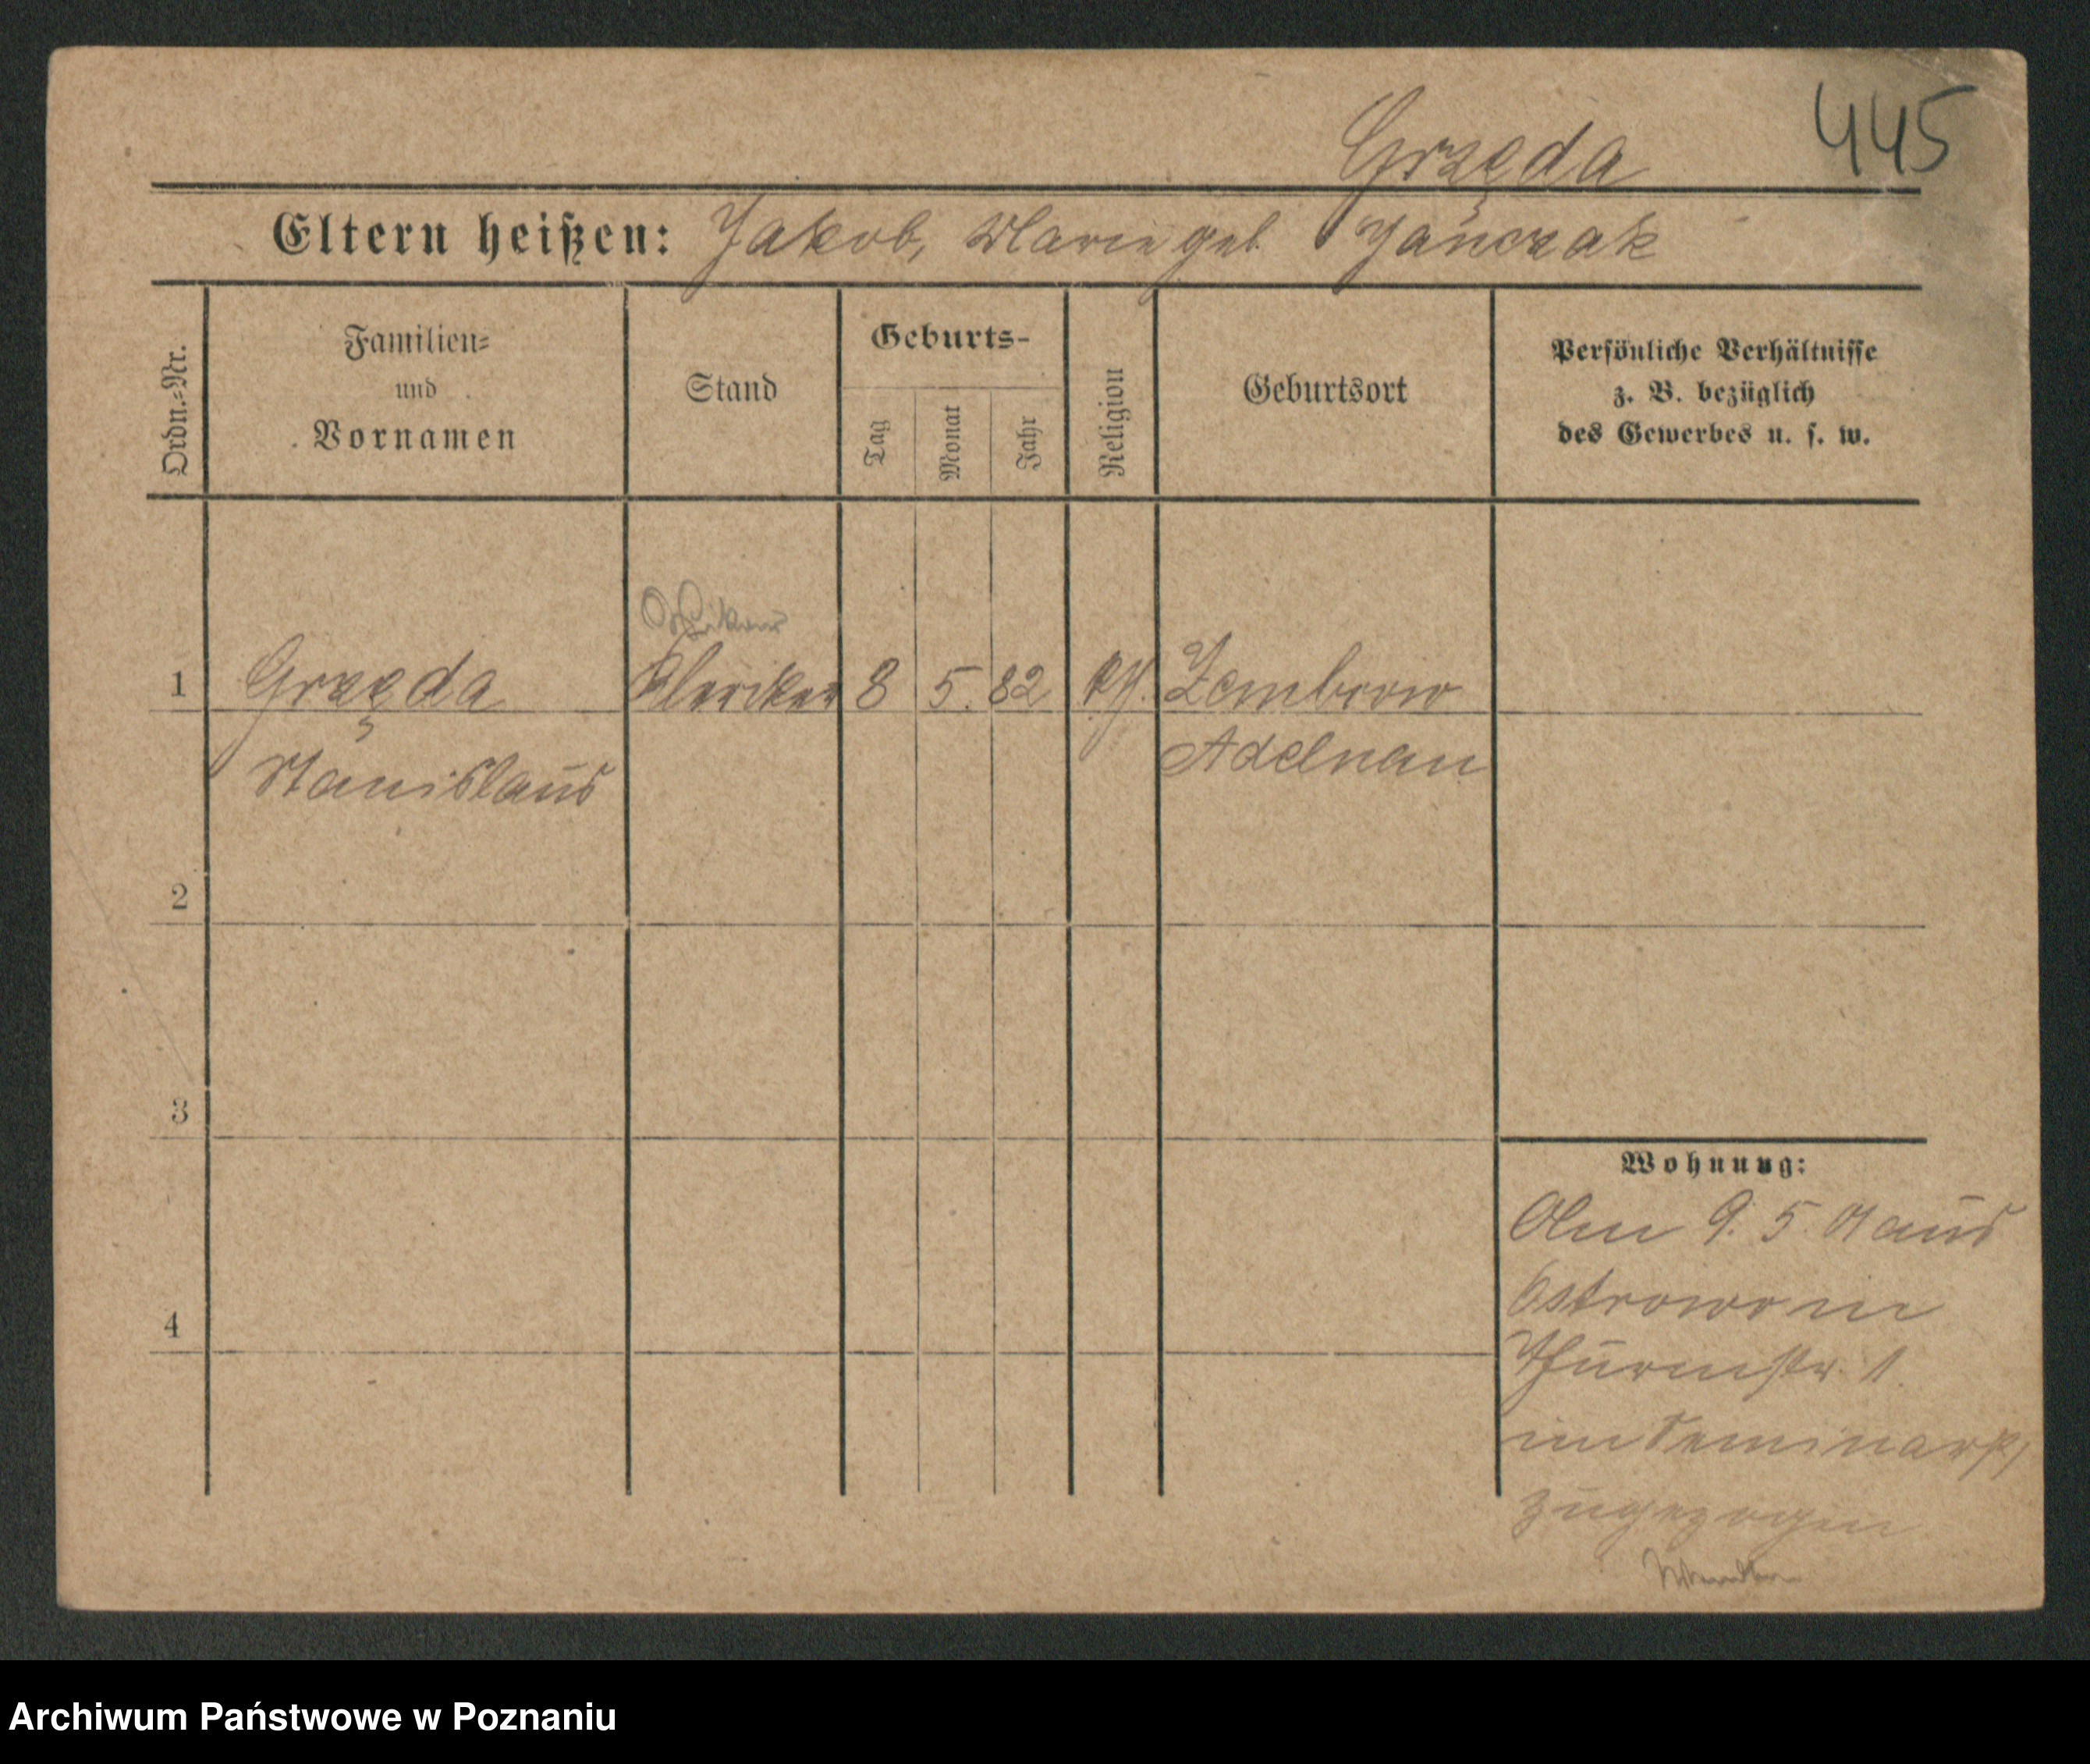 445
Grzęda
Eltern heißen: Jakob, Marie geb. Jańczak
Ordn.-Nr.
Familien-
und
Vornamen
Stand
Geburts-
Tag
Monat
Jahr
Religion
Geburtsort
Persönliche Verhältnisse
z. B. bezüglich
des Gewerbes u. s. w.
1 Grzęda Kleriker 8 5. 82 kth. Zembrow
Stanislaus Adelnau
2
3
4
Wohnung:
Am 9. 5. 01 aus
Ostrowo in
Thurmstr. 1
im Seminar
zugezogen
Archiwum Państwowe w Poznaniu